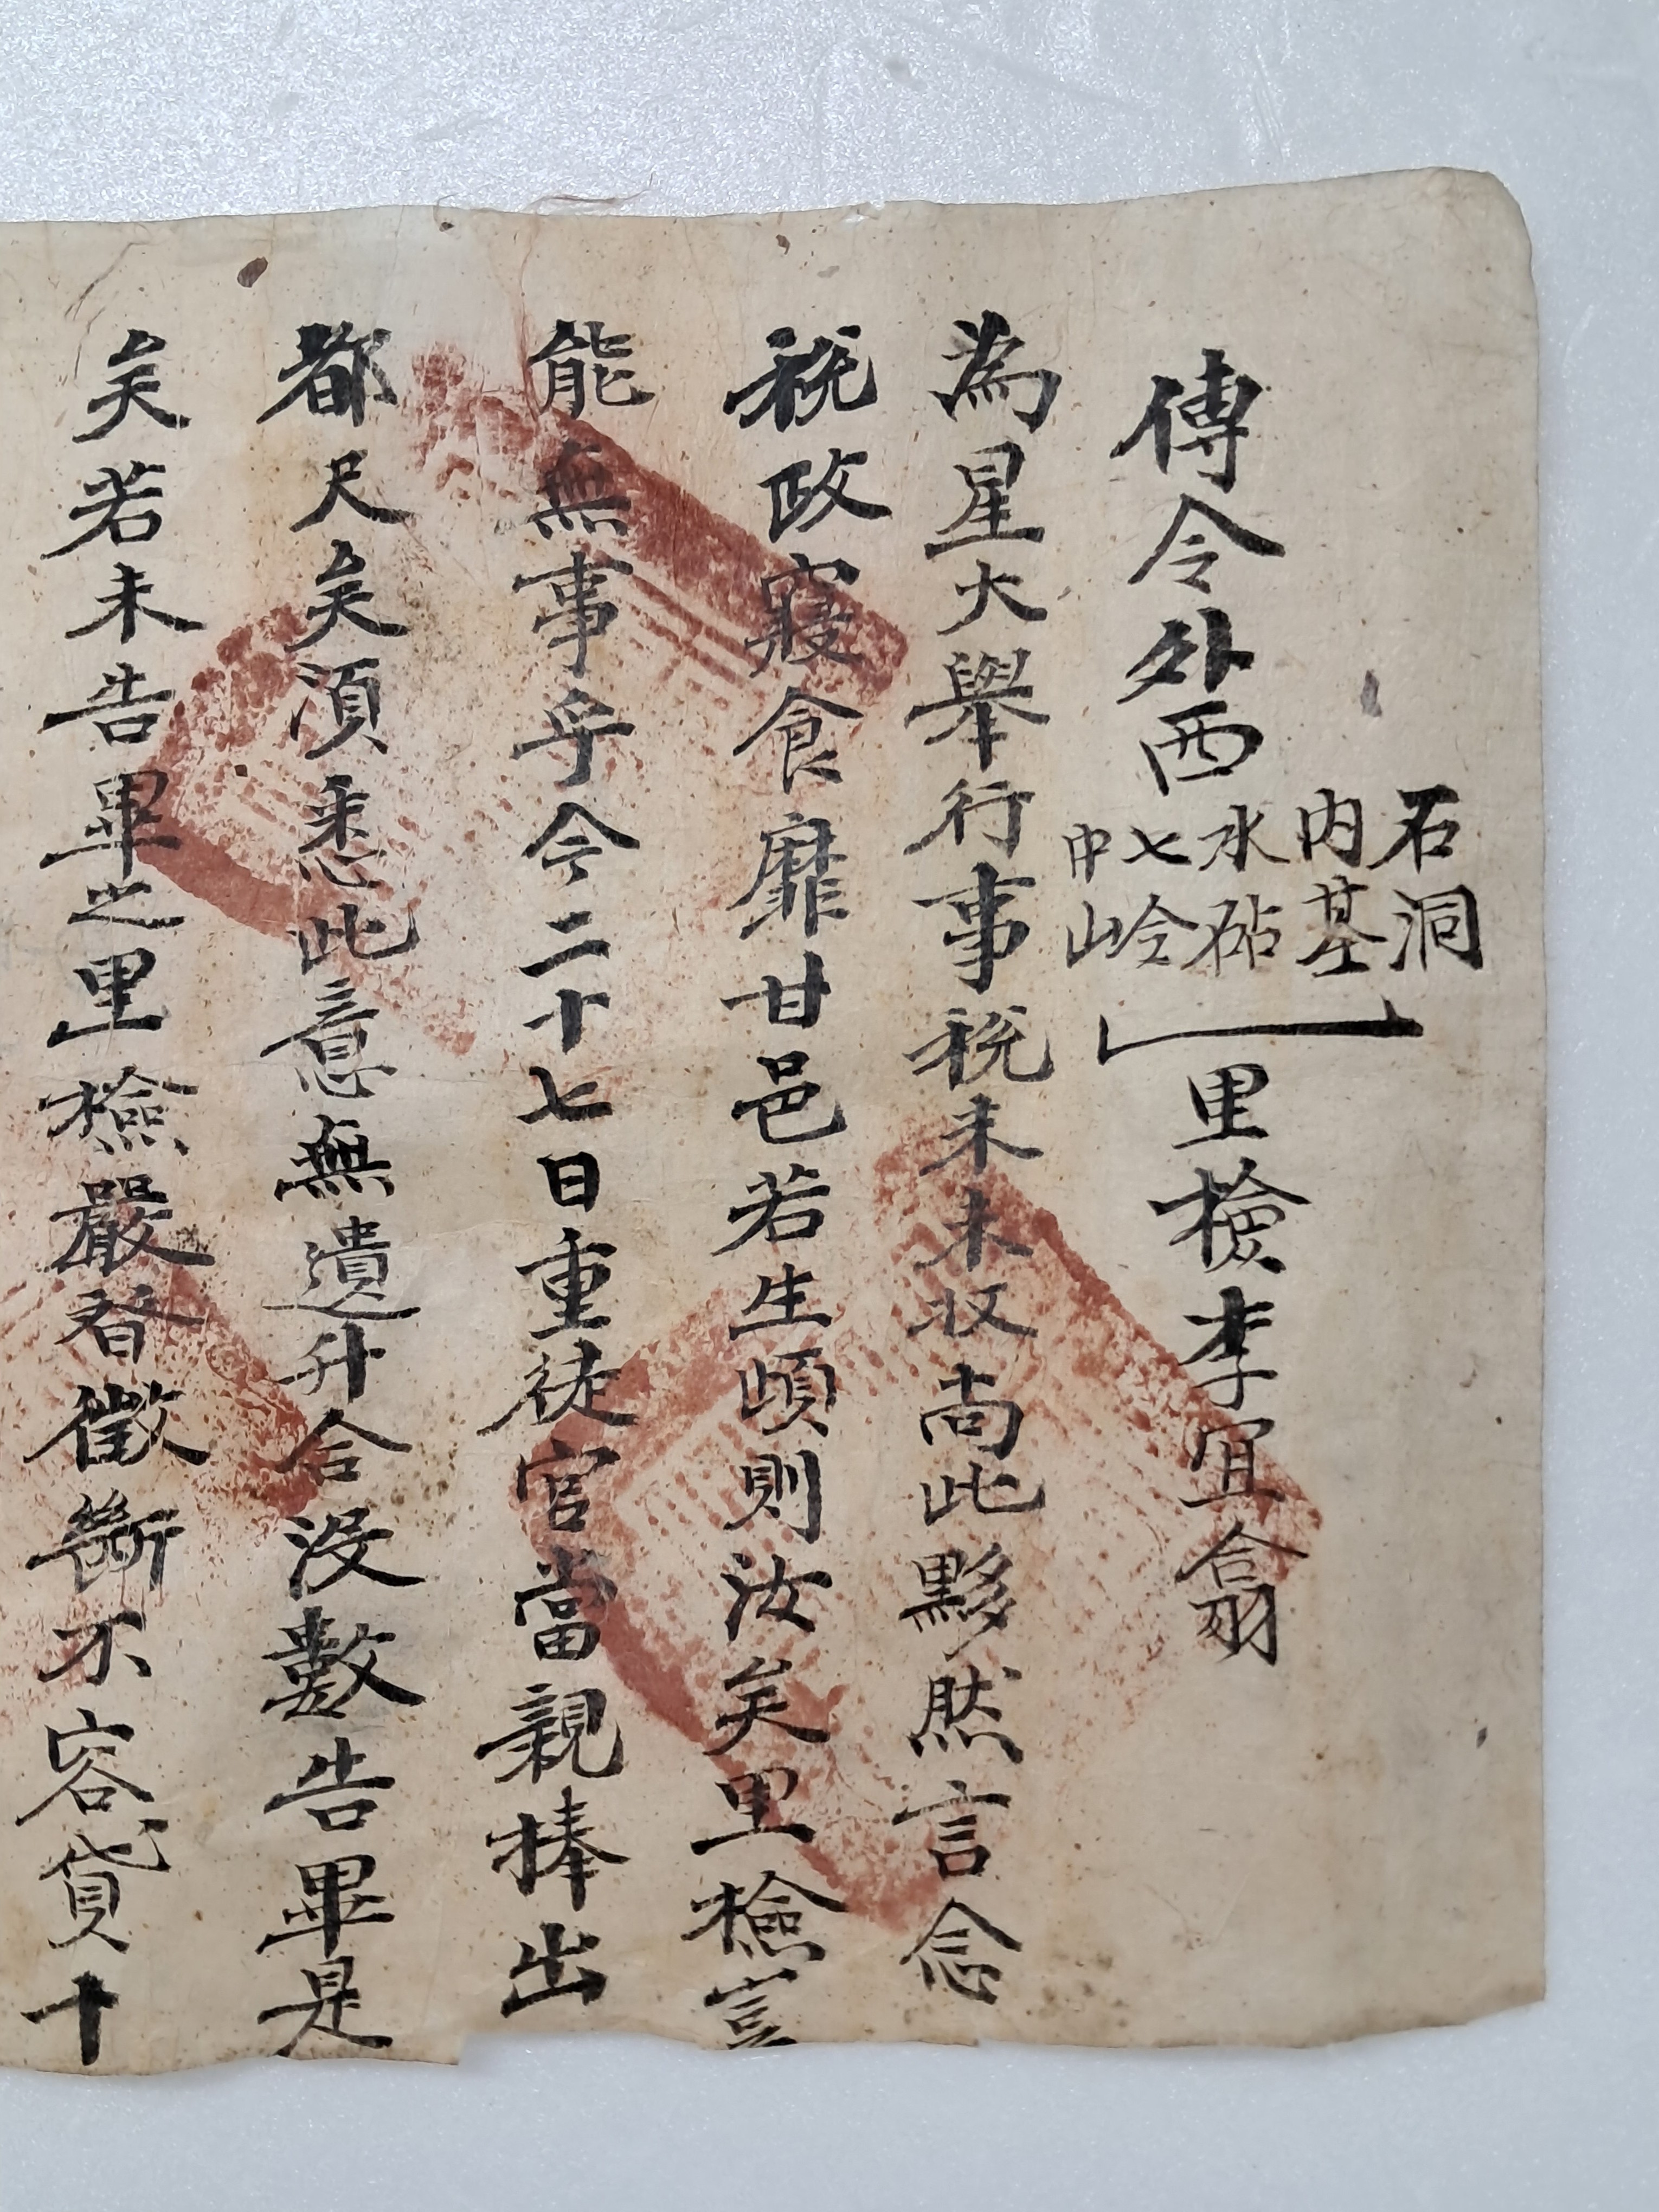 傳令外西
石洞
内基
水砧
七岭
中山
里檢李冝翕
為星火舉行事稅未未收尚此夥然言念
稅政寢食靡甘邑若生頉則汝矣里檢豈
能無事乎今二十七日重徒官當親捧出
都尺矣須悉此意無遺升合没數告畢是
矣若未告畢之里檢嚴督徵斷不容貸十